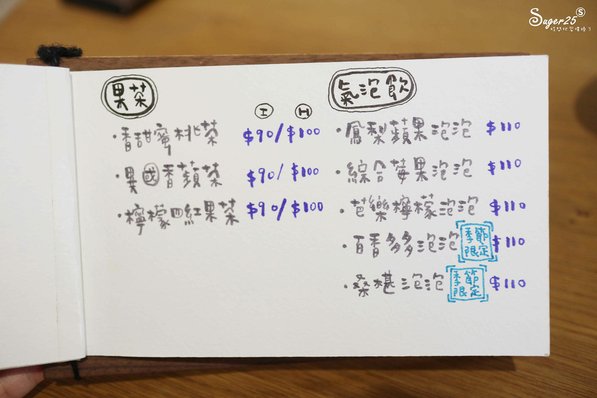 Suger25 S
果茶
I H
·香甜蜜桃茶 $90/$100
·異國香蘋茶 $90/$100
·檸檬四紅果茶 $90/$100
氣泡飲
·鳳梨蘋果泡泡 $110
·綜合莓果泡泡 $110
·芭樂檸檬泡泡 $110
·百香多多泡泡 季節限定 $110
·桑椹泡泡 季節限定 $110